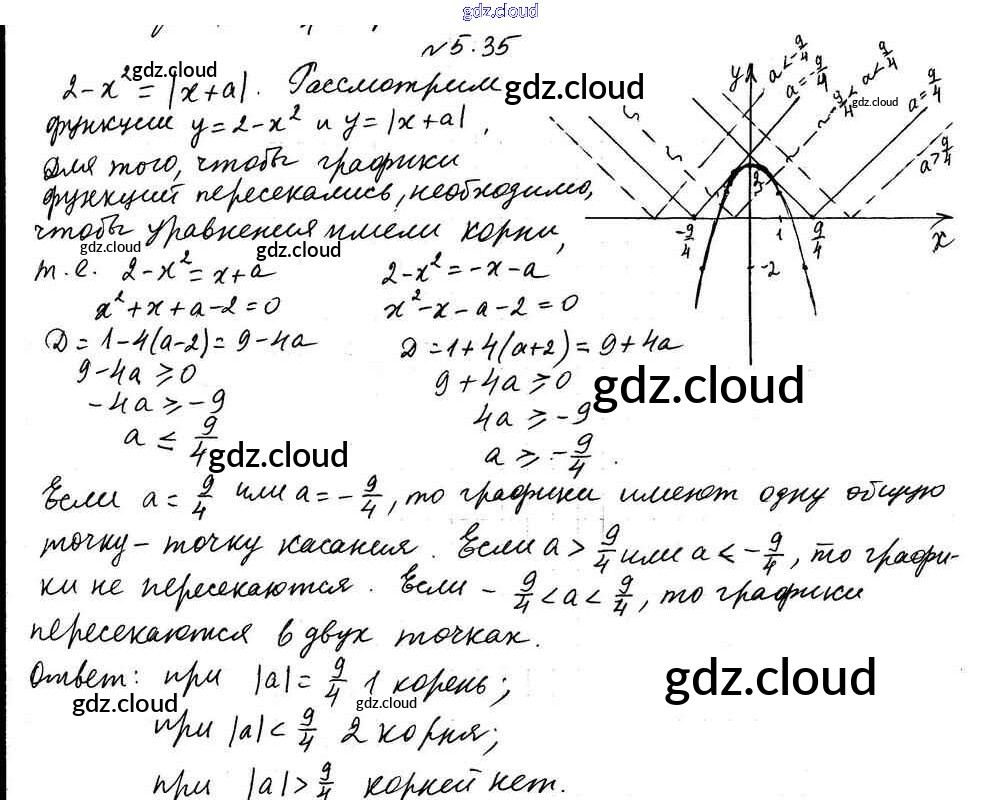 gdz.cloud
№5.35
2-x² = |x+a|. Рассмотрим
функции y=2-x² и y=|x+a|,
для того, чтобы графики
функций пересекались, необходимо,
чтобы уравнения имели корни,
т.е. 2-x²=x+a 2-x²=-x-a
x²+x+a-2=0 x²-x-a-2=0
D=1-4(a-2)=9-4a D=1+4(a+2)=9+4a
9-4a≥0 9+4a≥0
-4a≥-9 4a≥-9
a≤9/4 a≥-9/4.
Если a=9/4 или a=-9/4, то графики имеют одну общую
точку-точку касания. Если a>9/4 или a<-9/4, то графи-
ки не пересекаются. Если -9/4<a<9/4, то графики
пересекаются в двух точках.
Ответ: при |a|=9/4 1 корень;
при |a|<9/4 2 корня;
при |a|>9/4 корней нет.
y
a<-9/4
a=-9/4
-9/4<a<9/4
a=9/4
a>9/4
-9/4
1
9/4
x
-2
gdz.cloud
gdz.cloud
gdz.cloud
gdz.cloud
gdz.cloud
gdz.cloud
gdz.cloud
gdz.cloud
gdz.cloud
gdz.cloud